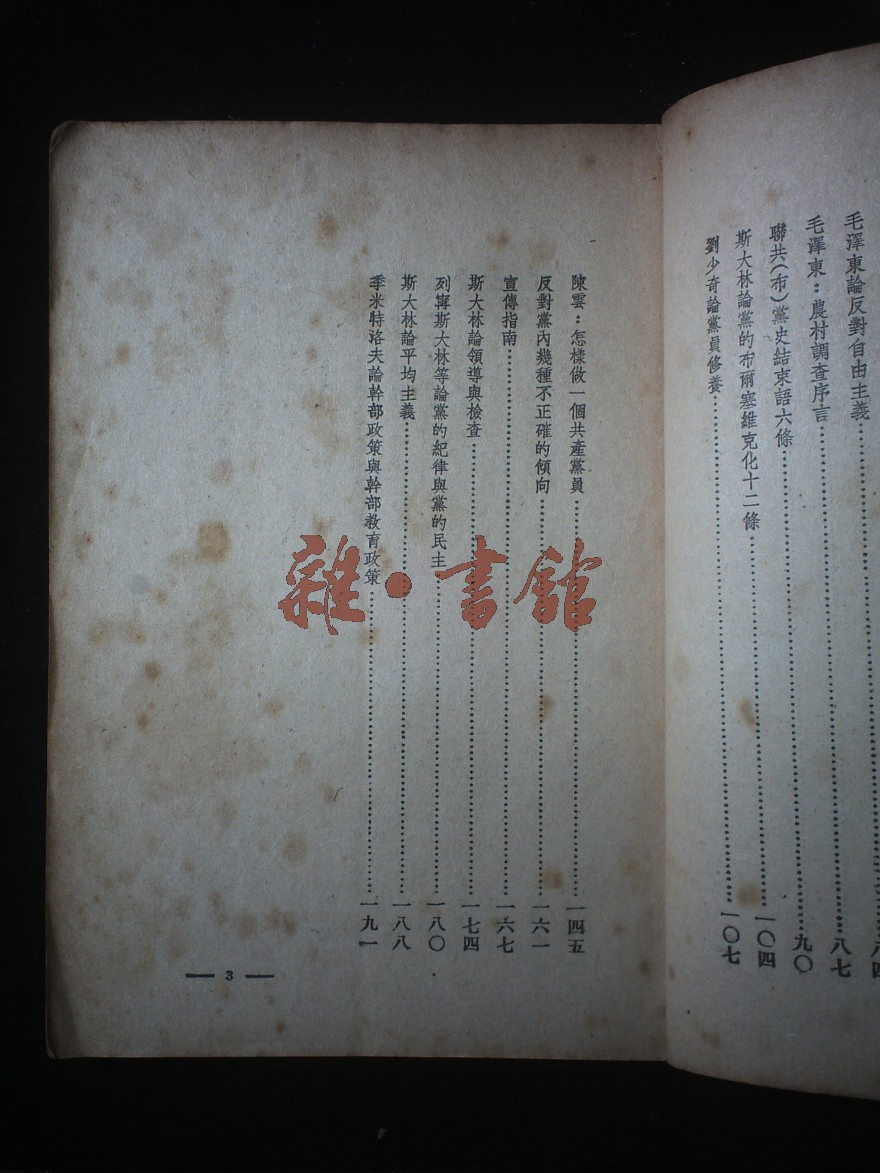 毛澤東論反對自由主義……
毛澤東：農村調查序言……八七
聯共（布）黨史結束語六條……九〇
斯大林論黨的布爾塞維克化十二條……一〇四
劉少奇論黨員修養……一〇七
陳雲：怎樣做一個共產黨員……一四五
反對黨內幾種不正確的傾向……一六一
宣傳指南……一六七
斯大林論領導與檢查……一七四
列寧斯大林等論黨的紀律與黨的民主……一八〇
斯大林論平均主義……一八八
季米特洛夫論幹部政策與幹部教育政策……一九一
— 3 —
雜·書館